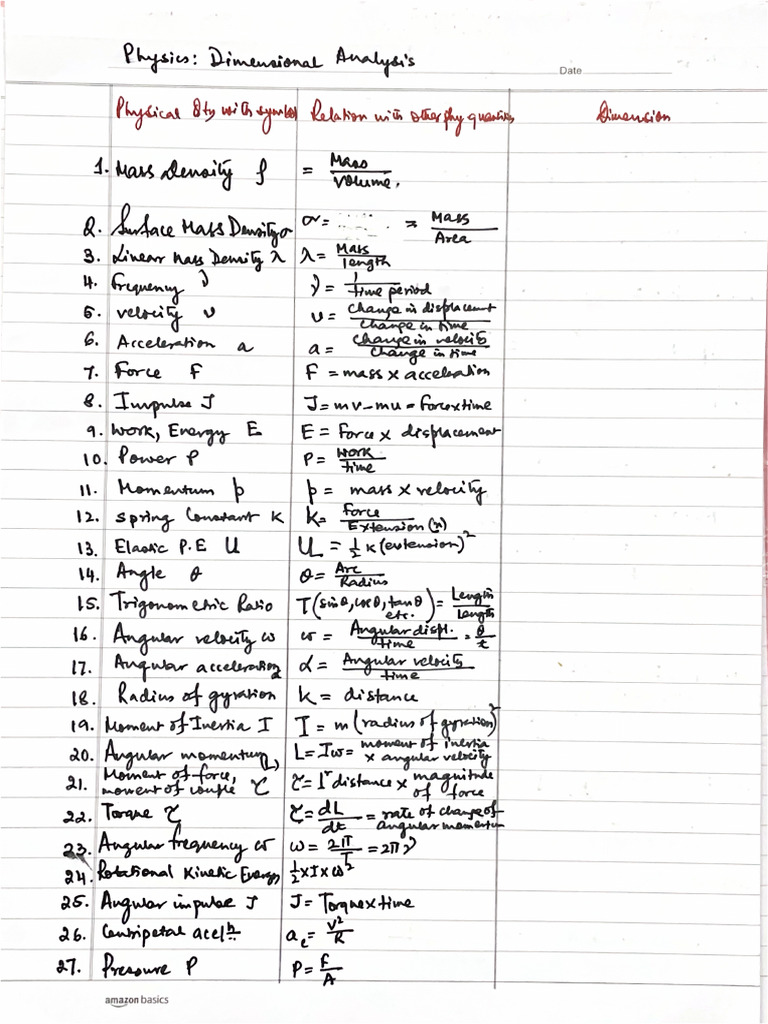 Physics: Dimensional Analysis
Date
Physical Qty with symbol Relation with other phy quantities Dimension
1. Mass Density ρ = Mass / Volume.
2. Surface Mass Density σ σ = ...... = Mass / Area
3. Linear Mass Density λ λ = Mass / length
4. Frequency ν ν = 1 / time period
5. velocity v v = change in displacement / change in time
6. Acceleration a a = change in velocity / change in time
7. Force F F = mass x acceleration
8. Impulse J J = mv - mu = force x time
9. Work, Energy E E = Force x displacement
10. Power P P = work / time
11. Momentum p p = mass x velocity
12. Spring Constant K K = force / Extension (x)
13. Elastic P.E U U = 1/2 K (extension)²
14. Angle θ θ = Arc / Radius
15. Trigonometric Ratio T (sinθ, cosθ, tanθ etc.) = Length / Length
16. Angular velocity ω ω = Angular displ. / time = θ / t
17. Angular acceleration α α = Angular velocity / time
18. Radius of gyration K = distance
19. Moment of Inertia I I = m (radius of gyration)²
20. Angular momentum (L) L = Iω = moment of inertia x angular velocity
21. Moment of force, moment of couple τ τ = ⊥r distance x magnitude of force
22. Torque τ τ = dL / dt = rate of change of angular momentum
23. Angular frequency ω ω = 2π / T = 2πν
24. Rotational Kinetic Energy 1/2 x I x ω²
25. Angular impulse J J = Torque x time
26. Centripetal accln. a_c = V² / R
27. Pressure P P = F / A
amazon basics